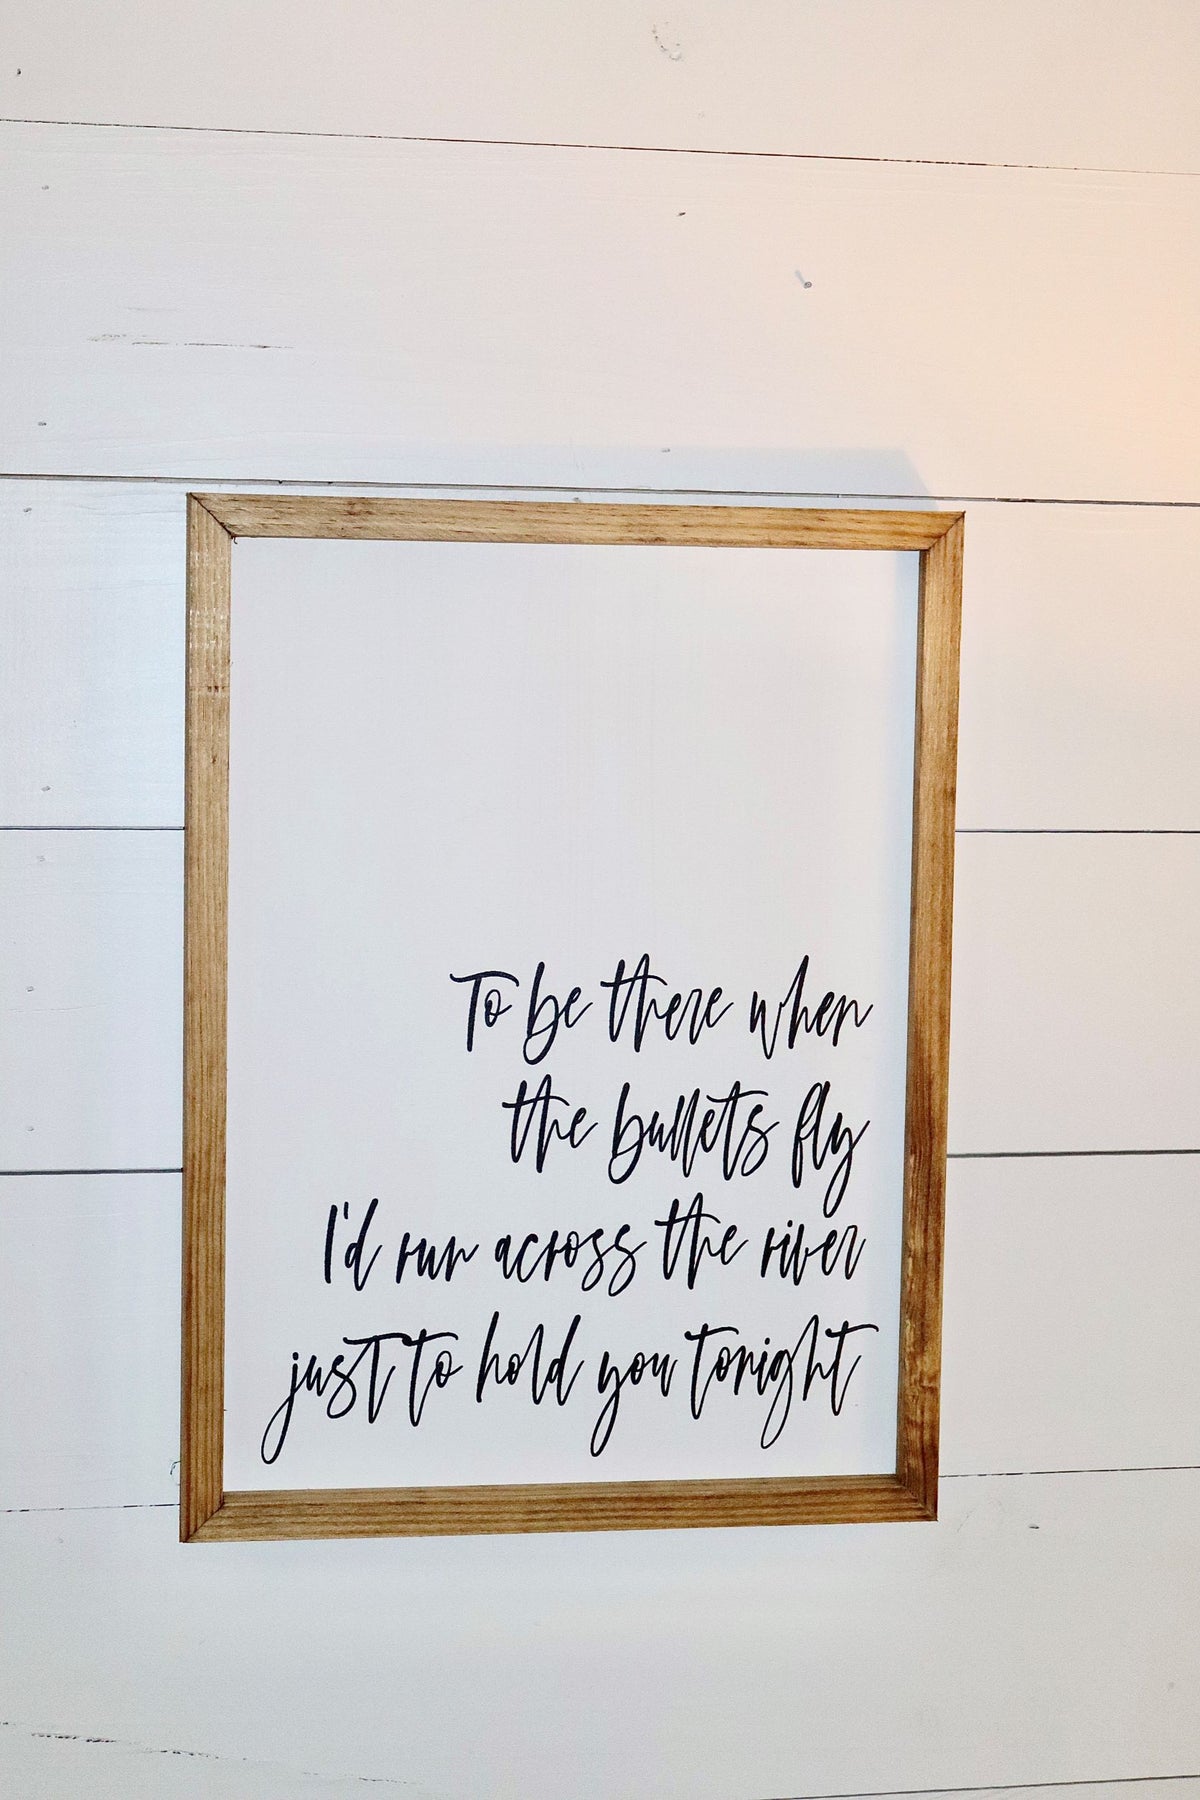 To be there when
the bullets fly
I'd run across the river
just to hold you tonight